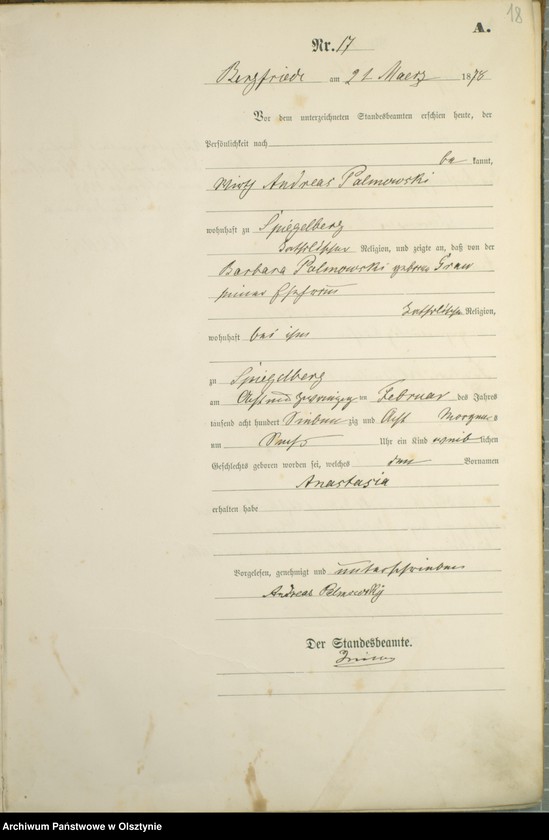 18
A.
Nr. 17
Bergfriede am 21 Maerz 1878
Vor dem unterzeichneten Standesbeamten erschien heute, der
Persönlichkeit nach
be kannt,
Wirth Andreas Palmowski
wohnhaft zu Spiegelberg
katholischer Religion, und zeigte an, daß von der
Barbara Palmowski geborne
seiner Ehefrau
katholischer Religion,
wohnhaft bei ihm
zu Spiegelberg
am Acht und zwanzigsten Februar des Jahres
tausend acht hundert Sieben zig und Acht Morgens
um Sechs Uhr ein Kind weib lichen
Geschlechts geboren worden sei, welches den Vornamen
Anastasia
erhalten habe
Vorgelesen, genehmigt und unterschrieben
Andreas Palmowsky
Der Standesbeamte.
Archiwum Państwowe w Olsztynie